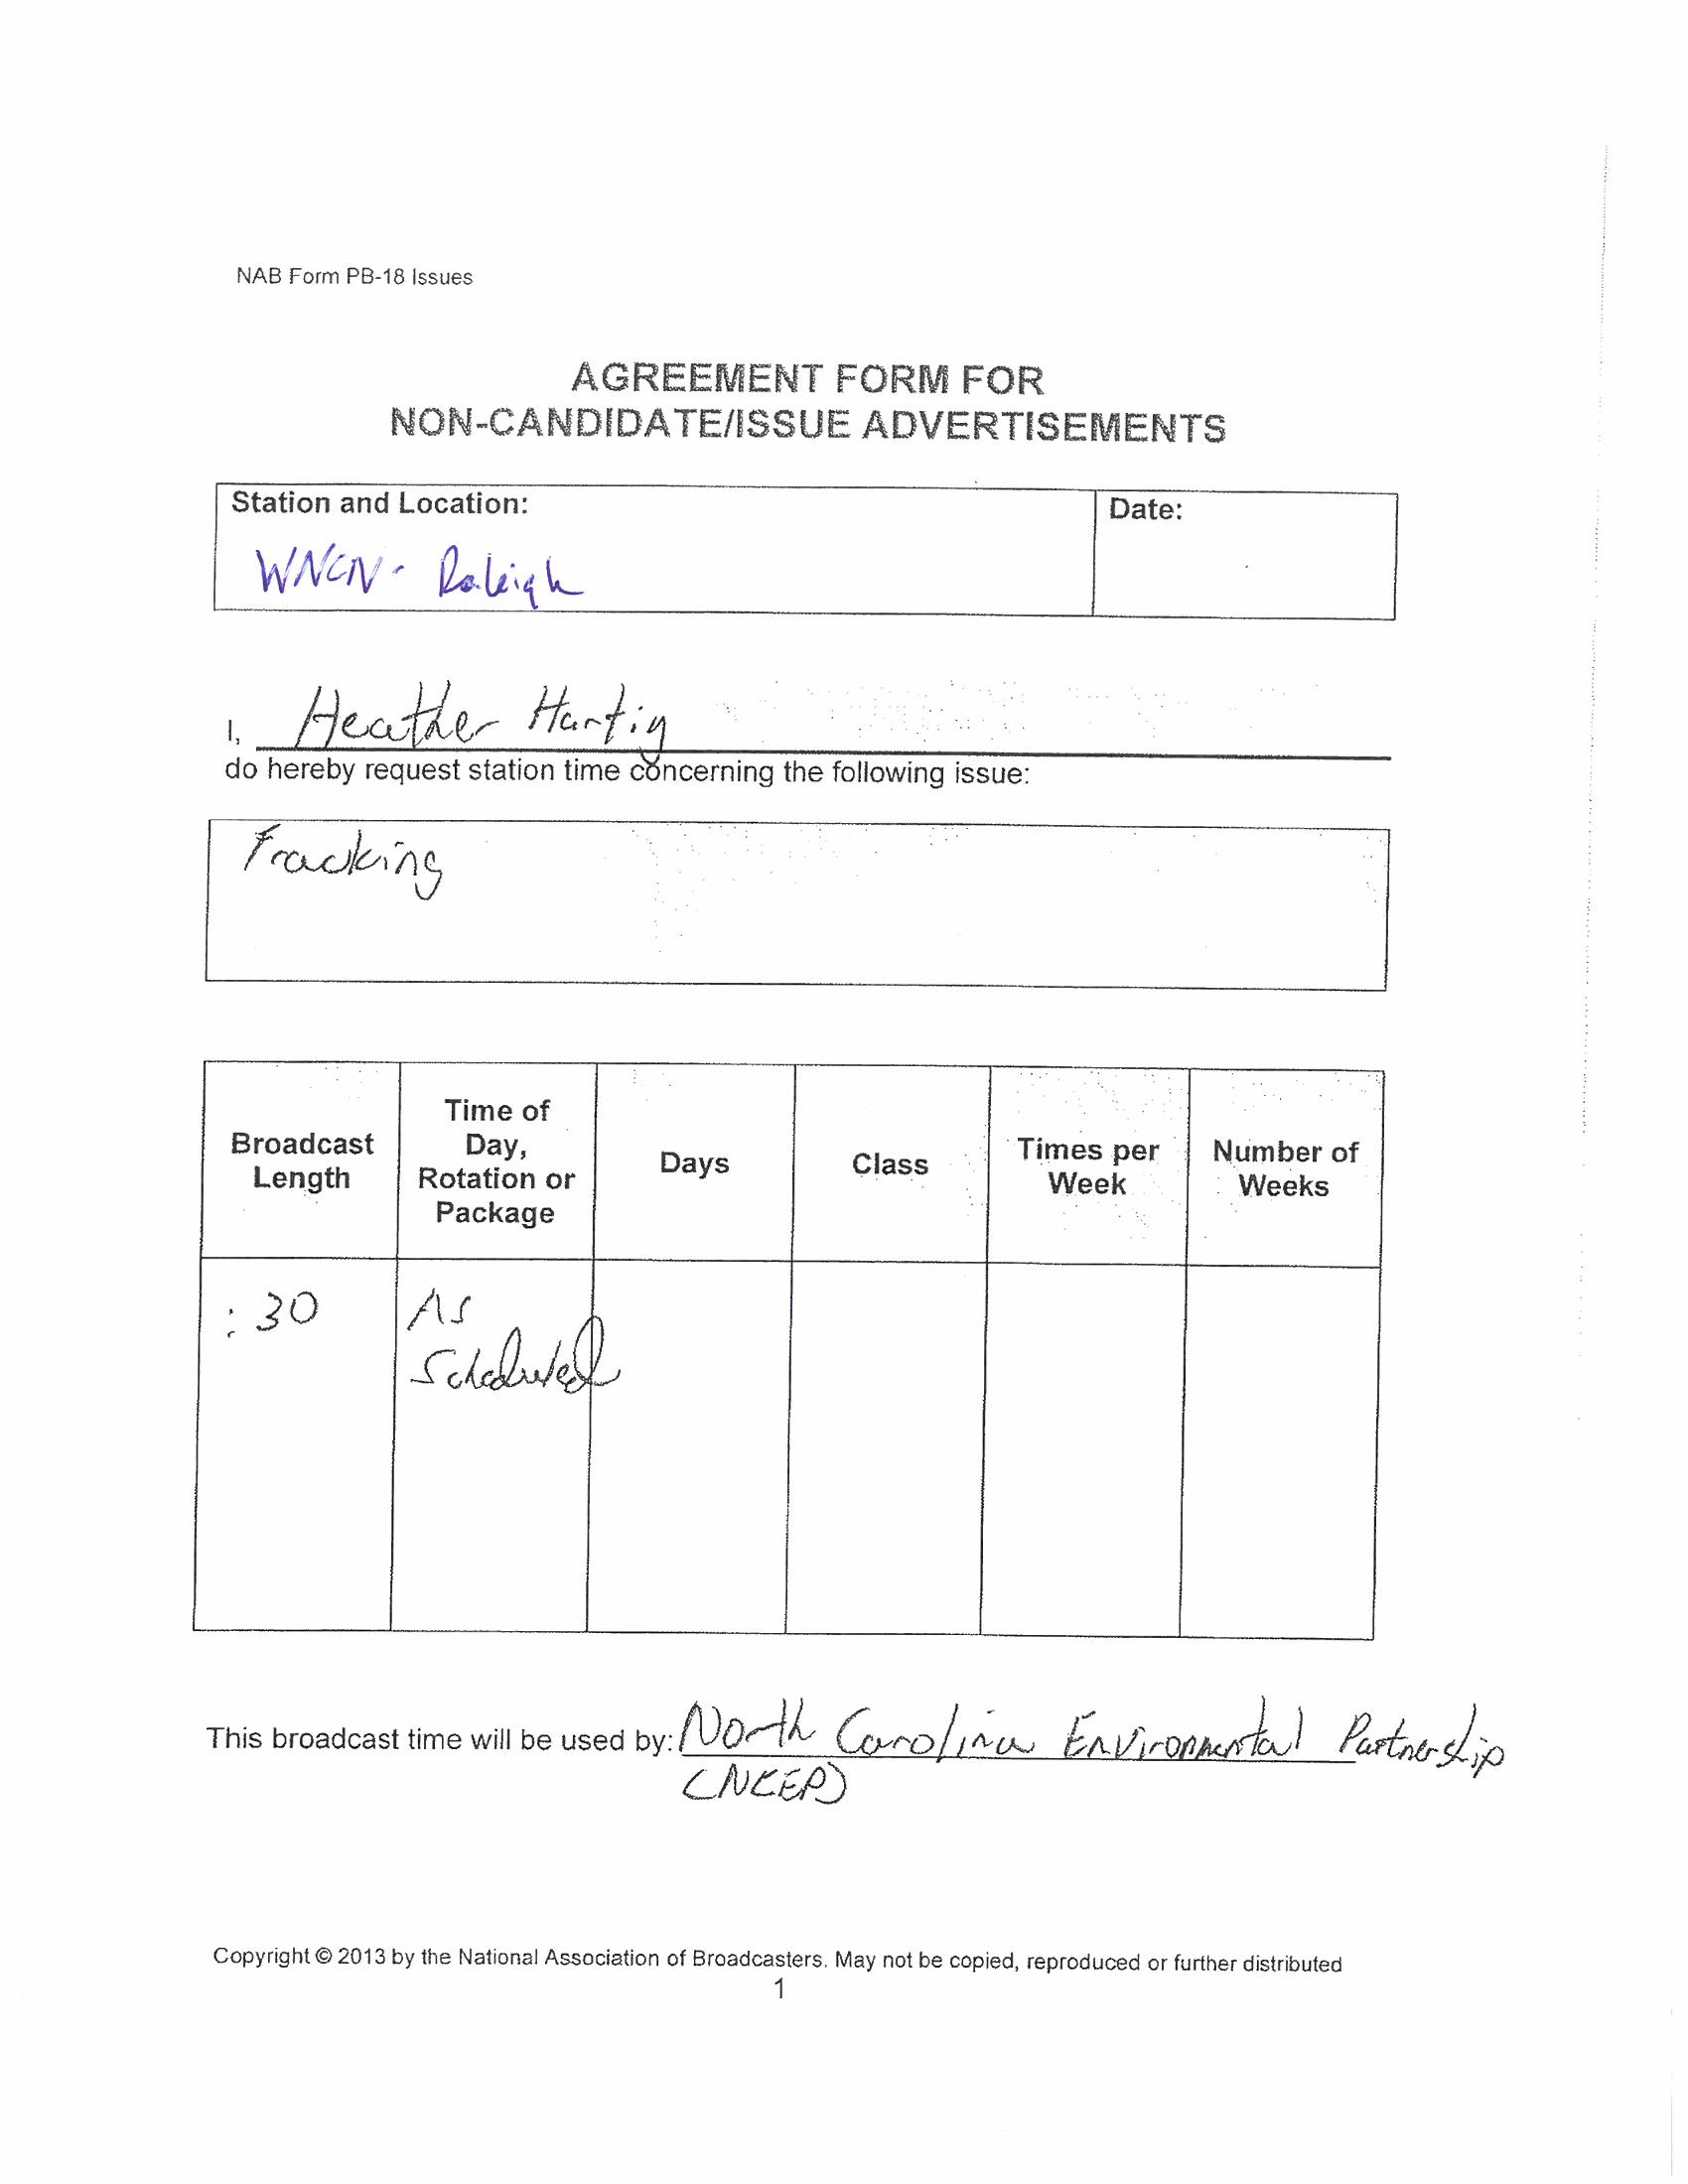 NAB Form PB-18 Issues
AGREEMENT FORM FOR
NON-CANDIDATE/ISSUE ADVERTISEMENTS
Station and Location:
Date:
WNCN - Raleigh
I, Heather Hartig
do hereby request station time concerning the following issue:
Fracking
Broadcast Length
Time of Day, Rotation or Package
Days
Class
Times per Week
Number of Weeks
:30
As Scheduled
This broadcast time will be used by: North Carolina Environmental Partnership
(NCEP)
Copyright © 2013 by the National Association of Broadcasters. May not be copied, reproduced or further distributed
1